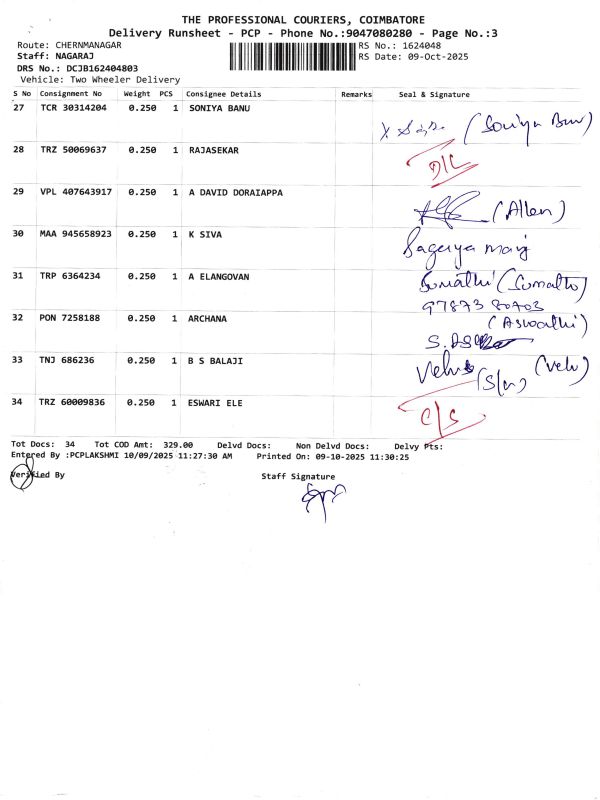 THE PROFESSIONAL COURIERS, COIMBATORE
Delivery Runsheet - PCP - Phone No.:9047080280 - Page No.:3
Route: CHERNMANAGAR RS No.: 1624048
Staff: NAGARAJ RS Date: 09-Oct-2025
DRS No.: DCJB162404803
Vehicle: Two Wheeler Delivery
S No Consignment No Weight PCS Consignee Details Remarks Seal & Signature
27 TCR 30314204 0.250 1 SONIYA BANU
(Soniya Banu)
28 TRZ 50069637 0.250 1 RAJASEKAR
D/L
29 VPL 407643917 0.250 1 A DAVID DORAIAPPA
(Allen)
30 MAA 945658923 0.250 1 K SIVA
Sagaya mary
31 TRP 6364234 0.250 1 A ELANGOVAN
Sumathi (Sumathi)
97873 80703
32 PON 7258188 0.250 1 ARCHANA
(Aswathi)
33 TNJ 686236 0.250 1 B S BALAJI
Velu (S/n) (Velu)
34 TRZ 60009836 0.250 1 ESWARI ELE
C/S
Tot Docs: 34 Tot COD Amt: 329.00 Delvd Docs: Non Delvd Docs: Delvy Pts:
Entered By :PCPLAKSHMI 10/09/2025 11:27:30 AM Printed On: 09-10-2025 11:30:25
Verified By Staff Signature